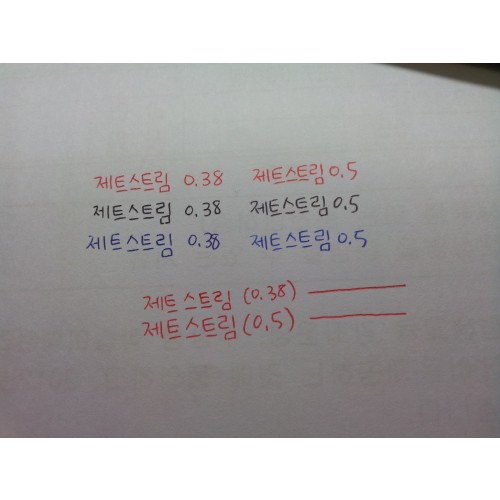 제트스트림 0.38 제트스트림 0.5
제트스트림 0.38 제트스트림 0.5
제트스트림 0.38 제트스트림 0.5
제트스트림 (0.38)
제트스트림 (0.5)